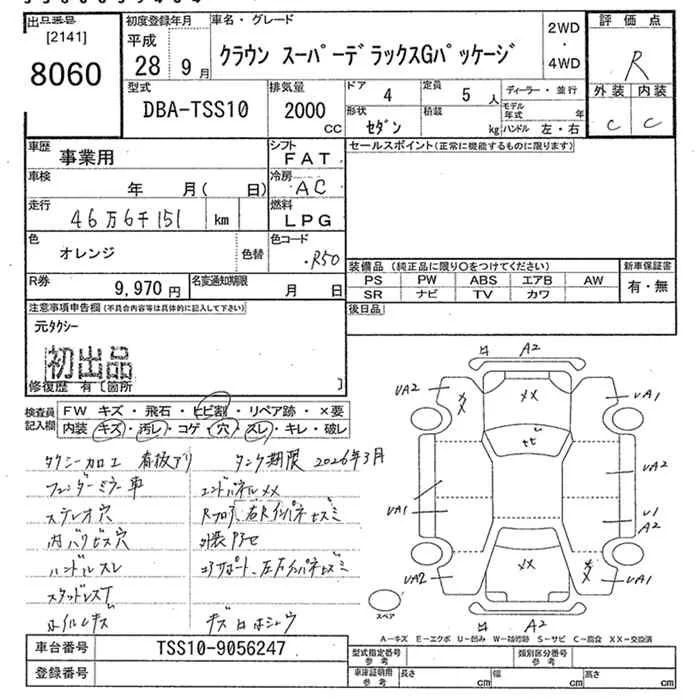 出品番号
[2141]
8060
初度登録年月
平成
28年9月
車名・グレード
クラウン スーパーデラックスGパッケージ
2WD
・
4WD
評価点
R
外装 内装
C C
型式
DBA-TSS10
排気量
2000
CC
ドア
4
定員
5 人
ディーラー・並行
形状
セダン
積載
kg
モデル年式 年
ハンドル 左・右
車歴
事業用
シフト
FAT
セールスポイント(正常に機能するものに限ります)
車検
年 月( 日)
冷房
AC
走行
46万6千151 km
燃料
LPG
色
オレンジ
色替
色コード
R50
R券
9,970円
名変通知期限
月 日
装備品 (純正品に限り○をつけてください)
PS PW ABS エアB AW
SR ナビ TV カワ
新車保証書
有・無
後日品
注意事項申告欄(不具合内容等は具体的に記入して下さい)
元タクシー
初出品
修復歴 有〔箇所 〕
検査員記入欄
FW キズ・飛石・ヒビ割・リペア跡・×要
内装 キズ・汚レ・コゲ・穴・スレ・キレ・破レ
タクシー加工 看板アリ タンク期限 2026年3月
フェンダーミラー車
エンドパネルメメ
ステレオ穴
内バリビス穴
外装アセ
ハンドルスレ
スタッドレスT
ホイルキズ
A2
UA2
UA1
メメ
ヒビ
UA1
UA2
U1
A2
UA2
メメ
UA1
A2
スペア
A-キズ E-エクボ U-凹み W-補修跡 S-サビ C-腐食 XX-交換済
車台番号
TSS10-9056247
登録番号
型式指定番号
参考
類別区分番号
参考
車庫証明用
参考
長さ cm
幅 cm
高さ cm